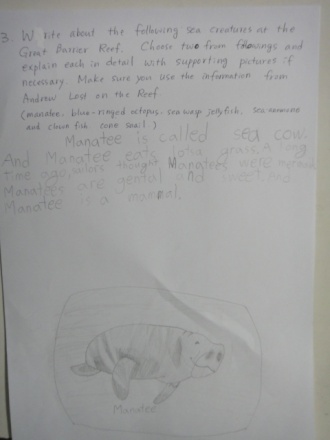 3. Write about the following sea creatures at the
Great Barrier Reef. Choose two from followings and
explain each in detail with supporting pictures if
necessary. Make sure you use the information from
Andrew Lost on the Reef
(manatee, blue-ringed octopus, sea wasp jellyfish, sea anemone
and clown fish cone snail.)
Manatee is called sea cow.
And Manatee eats lotus grass. A long
Time ago, sailors thought Manatees were mermaid
Manatees are gental and sweet,
Manatee is a mammal.
Manatee